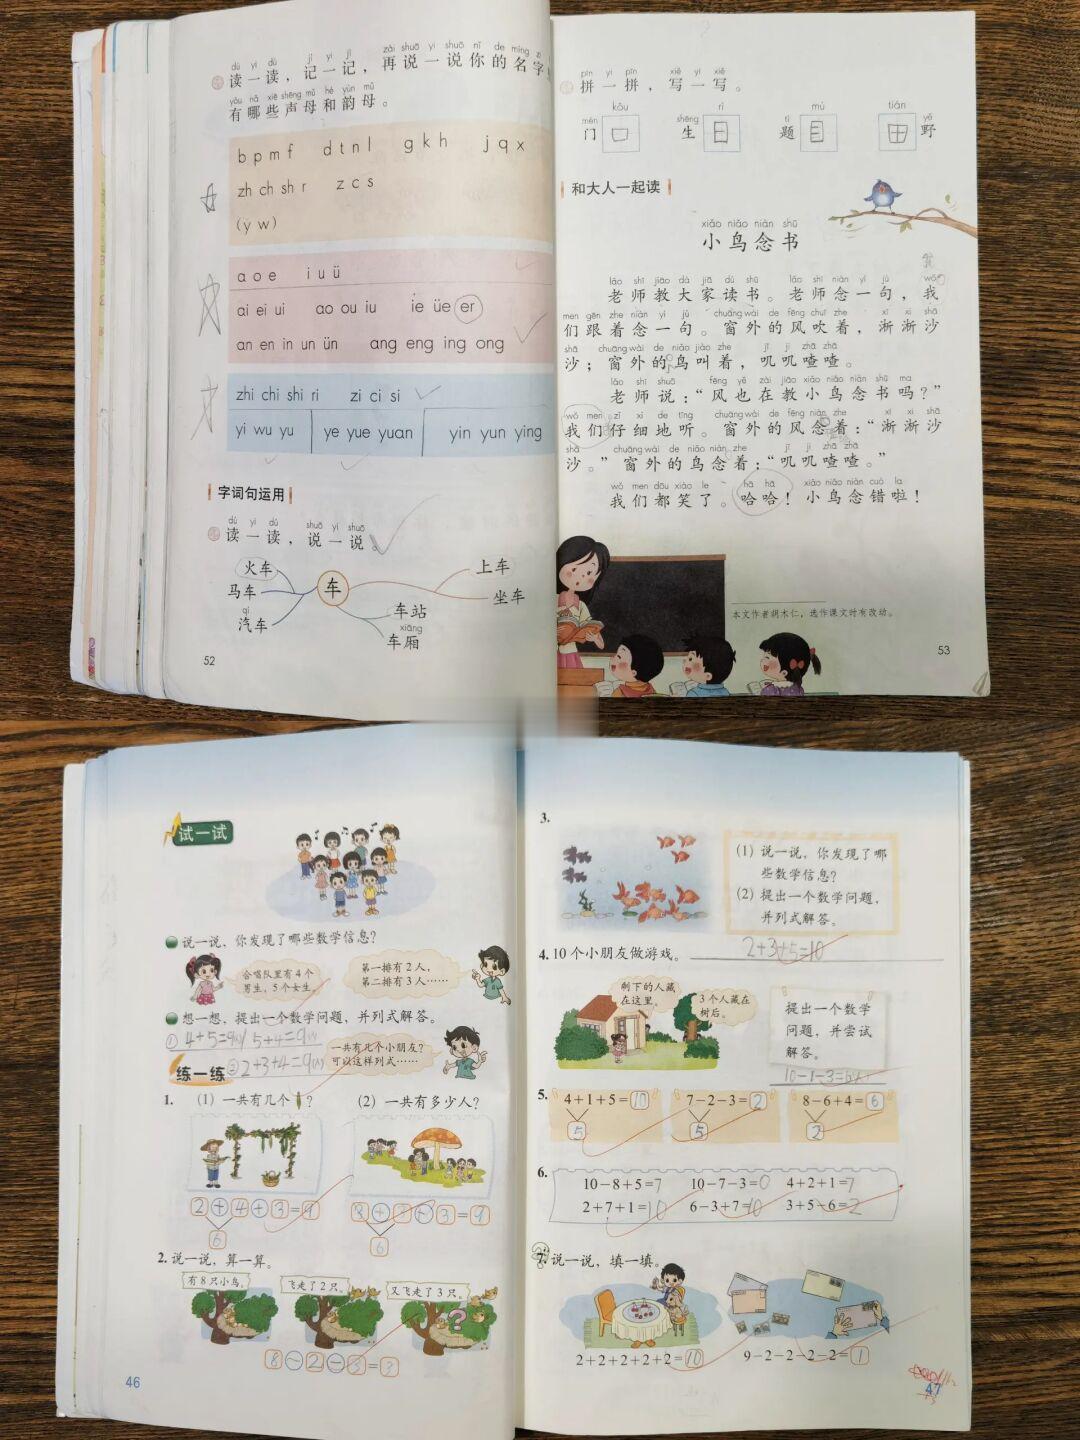 dú yi dú jì yi jì zài shuō yi shuō nǐ de míng zi
读一读，记一记，再说一说你的名字
yǒu nǎ xiē shēng mǔ hé yùn mǔ
有哪些声母和韵母。
b p m f d t n l g k h j q x
zh ch sh r z c s
(y w)
a o e i u ü
ai ei ui ao ou iu ie üe er
an en in un ün ang eng ing ong
zhi chi shi ri zi ci si
yi wu yu ye yue yuan yin yun ying
字词句运用
dú yi dú shuō yi shuō
读一读，说一说。
火车
马车
qì
汽车
车
上车
坐车
车站
xiāng
车厢
52
pīn yi pīn xiě yi xiě
拼一拼，写一写。
kǒu rì mù tián
mén shēng tí yě
门 口 生 日 题 目 田 野
和大人一起读
xiǎo niǎo niàn shū
小鸟念书
lǎo shī jiāo dà jiā dú shū lǎo shī niàn yí jù wǒ
老师教大家读书。老师念一句，我
men gēn zhe niàn yí jù chuāng wài de fēng chuī zhe xī xī shā
们跟着念一句。窗外的风吹着，淅淅沙
shā chuāng wài de niǎo jiào zhe jī jī zhā zhā
沙；窗外的鸟叫着，叽叽喳喳。
lǎo shī shuō fēng yě zài jiāo xiǎo niǎo niàn shū ma
老师说：“风也在教小鸟念书吗？”
wǒ men zǐ xì de tīng chuāng wài de fēng niàn zhe xī xī shā
我们仔细地听。窗外的风念着：“淅淅沙
shā chuāng wài de niǎo niàn zhe jī jī zhā zhā
沙。”窗外的鸟念着：“叽叽喳喳。”
wǒ men dōu xiào le hā hā xiǎo niǎo niàn cuò la
我们都笑了。哈哈！小鸟念错啦！
本文作者胡木仁，选作课文时有改动。
53
试一试
说一说，你发现了哪些数学信息？
合唱队里有4个
男生，5个女生。
第一排有2人，
第二排有3人……
想一想，提出一个数学问题，并列式解答。
① 4+5=9 5+4=9
②2+3+4=9(人)
一共有几个小朋友？
可以这样列式……
练一练
1. (1) 一共有几个 ？ (2) 一共有多少人？
2+4+3=9
6
6
2. 说一说，算一算。
有8只小鸟。 飞走了2只。 又飞走了3只。
?
8-2-3=3
46
3.
(1) 说一说，你发现了哪
些数学信息？
(2) 提出一个数学问题，
并列式解答。
2+3+5=10
4. 10个小朋友做游戏。
剩下的人藏
在这里。
3个人藏在
树后。
提出一个数学
问题，并尝试
解答。
10-1-3=6
5. 4+1+5=10 7-2-3=2 8-6+4=6
5 5 2
6.
10-8+5=7 10-7-3=0 4+2+1=7
2+7+1=10 6-3+7=10 3+5-6=2
7. 说一说，填一填。
2+2+2+2+2=10 9-2-2-2-2=1
47